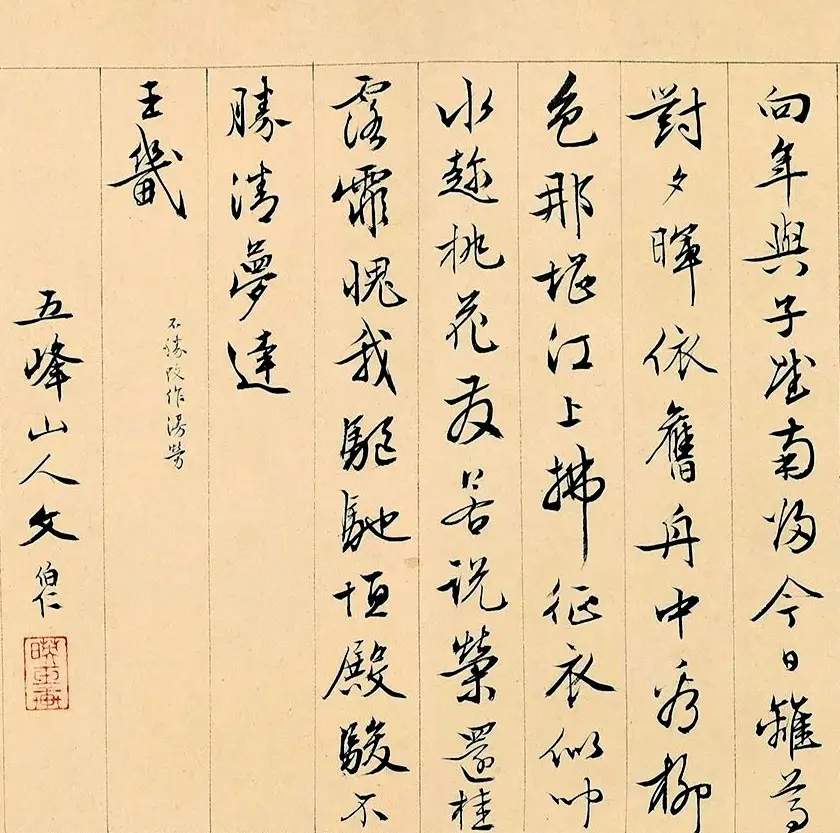 向年與子南歸今日離尊
對夕暉依舊舟中看柳
色那堪江上拂征衣似
水趁桃花發若說榮還桂
露霏愧我驅馳恒殿駿不
勝清夢達
王畿
不勝改作漫勞
五峰山人文伯仁